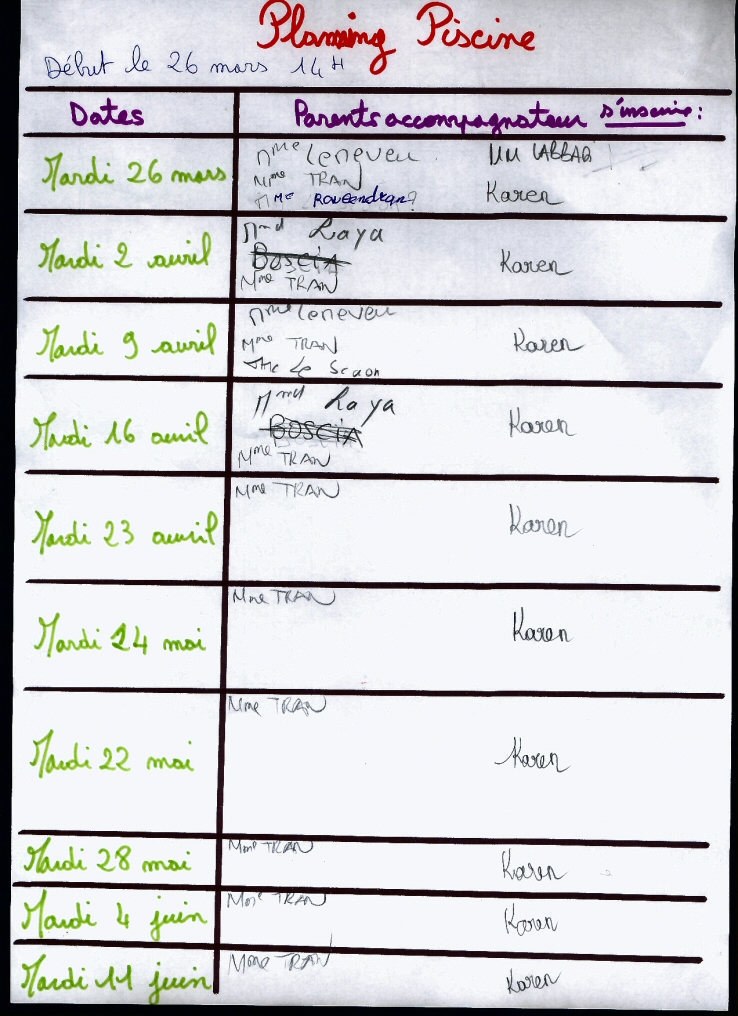 Planning Piscine
Début le 26 mars 14H
Dates Parents accompagnateur s'inscrire :
Mardi 26 mars
Mme Leneveu
Mme TRAN Karen
Mme Raveendran?
Mardi 2 avril
Mmd Laya
BOSCIA Karen
Mme TRAN
Mardi 9 avril
Mme Leneveu
Mme TRAN Karen
Le Scaon
Mardi 16 avril
Mmd Laya
BOSCIA Karen
Mme TRAN
Mardi 23 avril
Mme TRAN
Karen
Mardi 14 mai
Mme TRAN
Karen
Mardi 22 mai
Mme TRAN
Karen
Mardi 28 mai
Mme TRAN
Karen
Mardi 4 juin
Mme TRAN
Karen
Mardi 11 juin
Mme TRAN
Karen